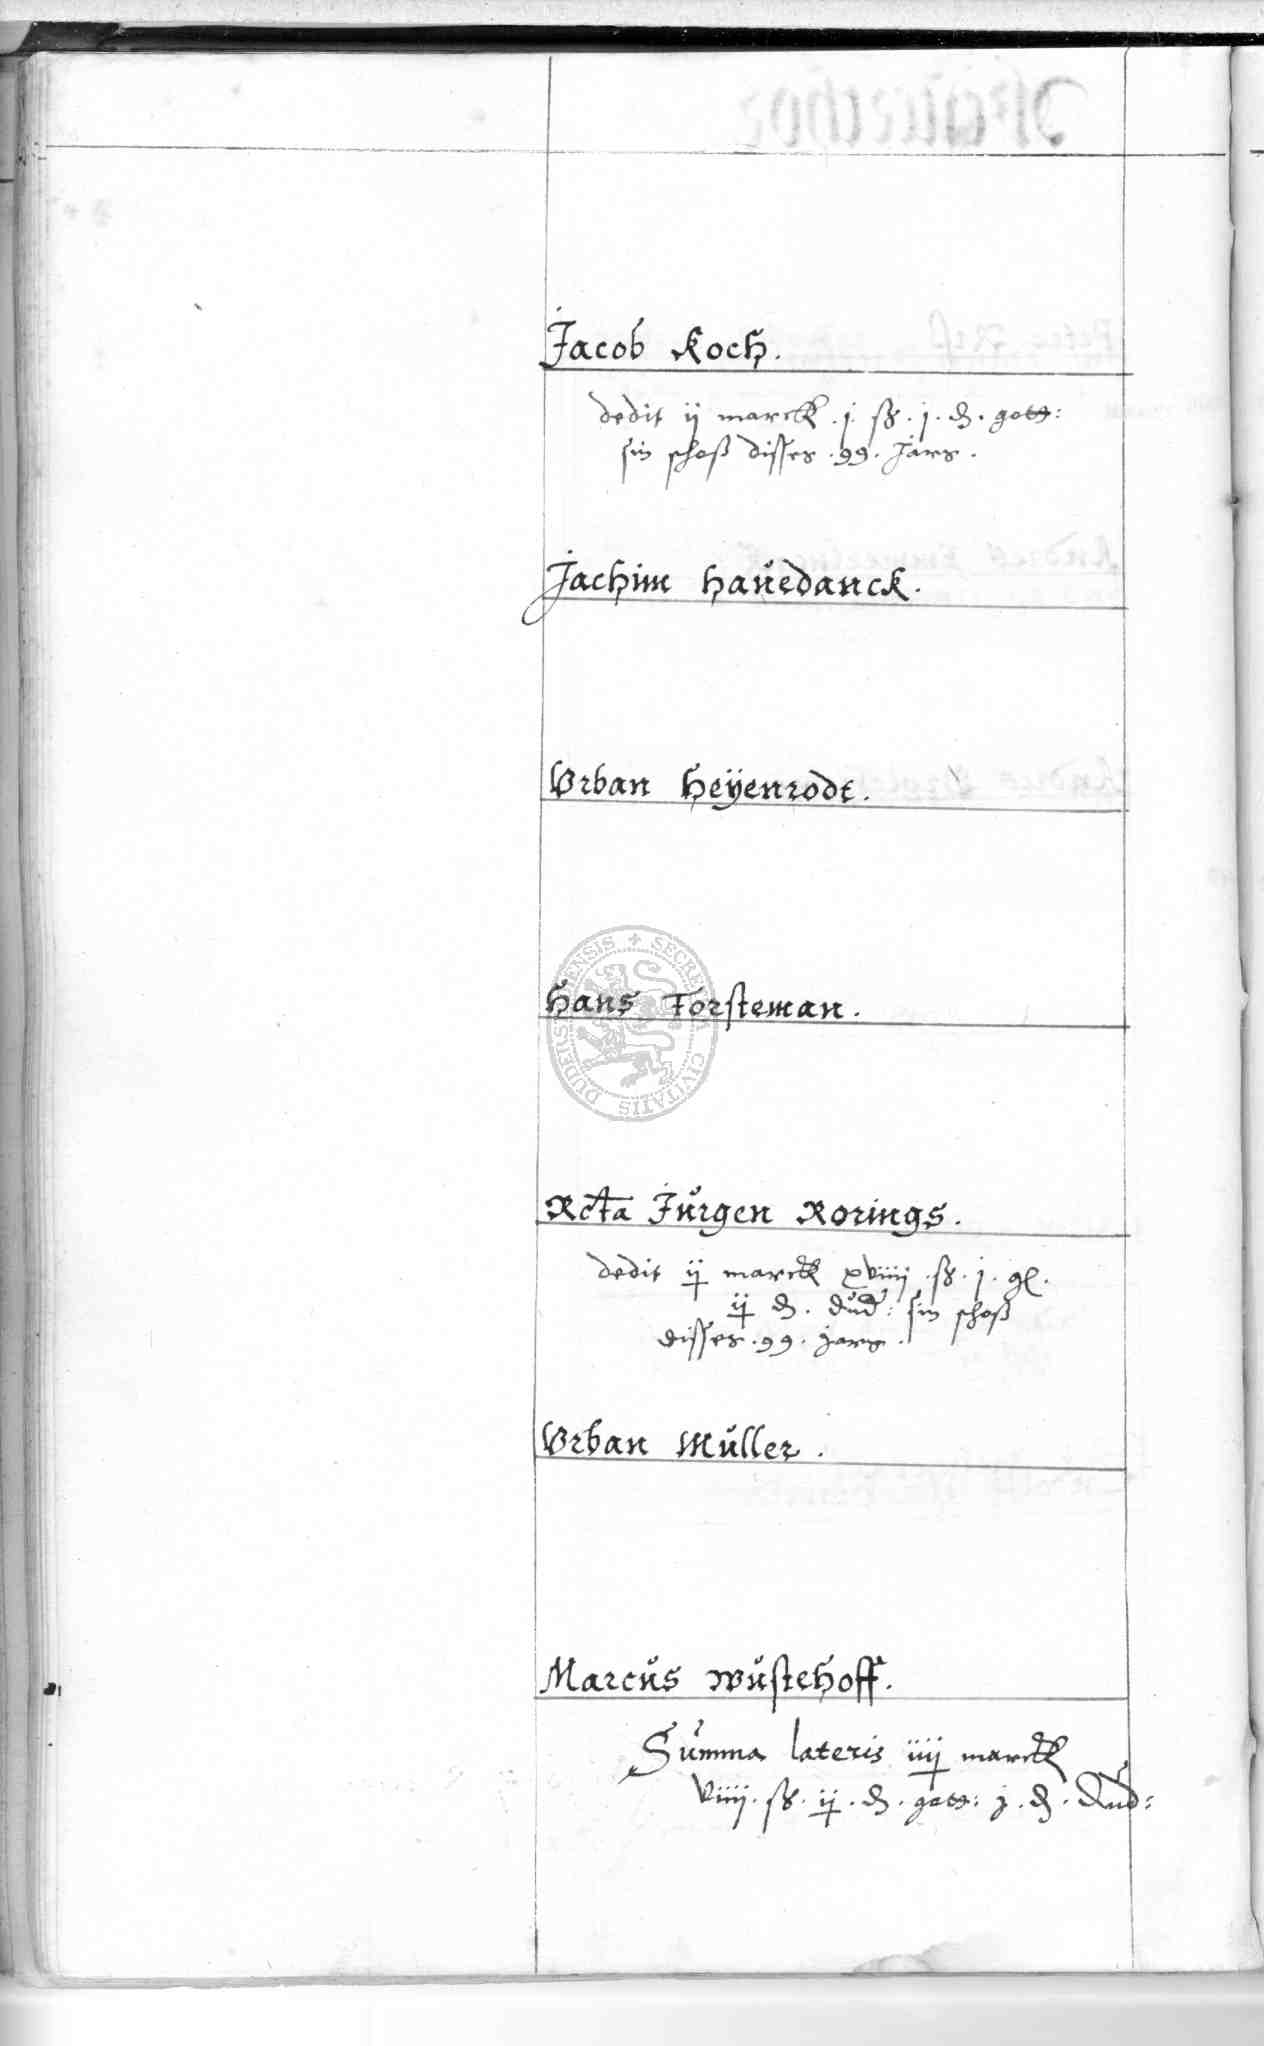 Jacob Koch.
dedit ij marck .j. ß. j. d. gott:
sin schoß disses .99. Jars.
Jachim Hauedanck.
Vrban Heÿenrodt.
Hans Forsteman.
Rcta Jürgen Rorings.
dedit ij marck xviiij .ß. j. gl.
ij d. dud: sin schoß
disses .99. jars.
Vrban Müller.
Marcus Wüstehoff.
Summa lateris iiij marck
viiij. ß. ij. d. gott: j. d. dud:
SECRET CIVITATIS DUDERS ENSIS